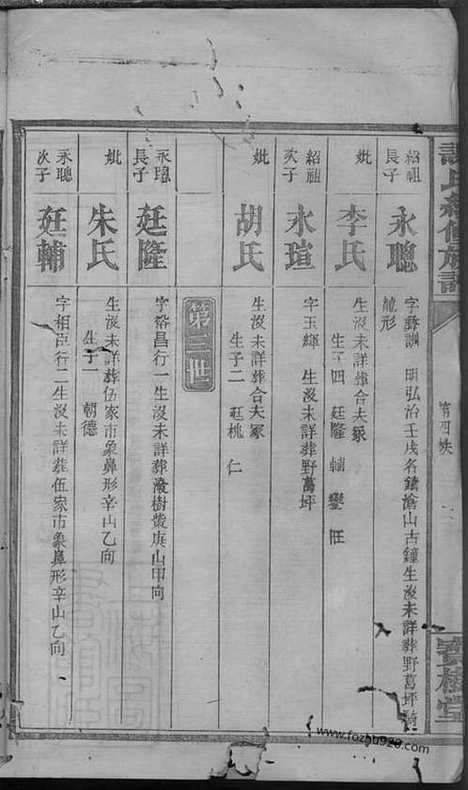 氏續修族譜
第四
寶樹堂
紹祖長子
永聰
字彝訓 明弘治壬戌名鑄滄山古鐘生沒未詳葬野葛坪
龍形
妣
李氏
生沒未詳葬合夫冢
生子四 廷隆 輔 鑾 旺
紹祖次子
永瑄
字玉輝 生沒未詳葬野葛坪
妣
胡氏
生沒未詳葬合夫冢
生子二 廷桃 仁
第三世
永聰長子
廷隆
字裕昌行一生沒未詳葬潑樹黃庚山甲向
妣
朱氏
生沒未詳葬伍家市象鼻形辛山乙向
生子一 朝德
永聰次子
廷輔
字相臣行二生沒未詳葬伍家市象鼻形辛山乙向
www.fozhu920.com